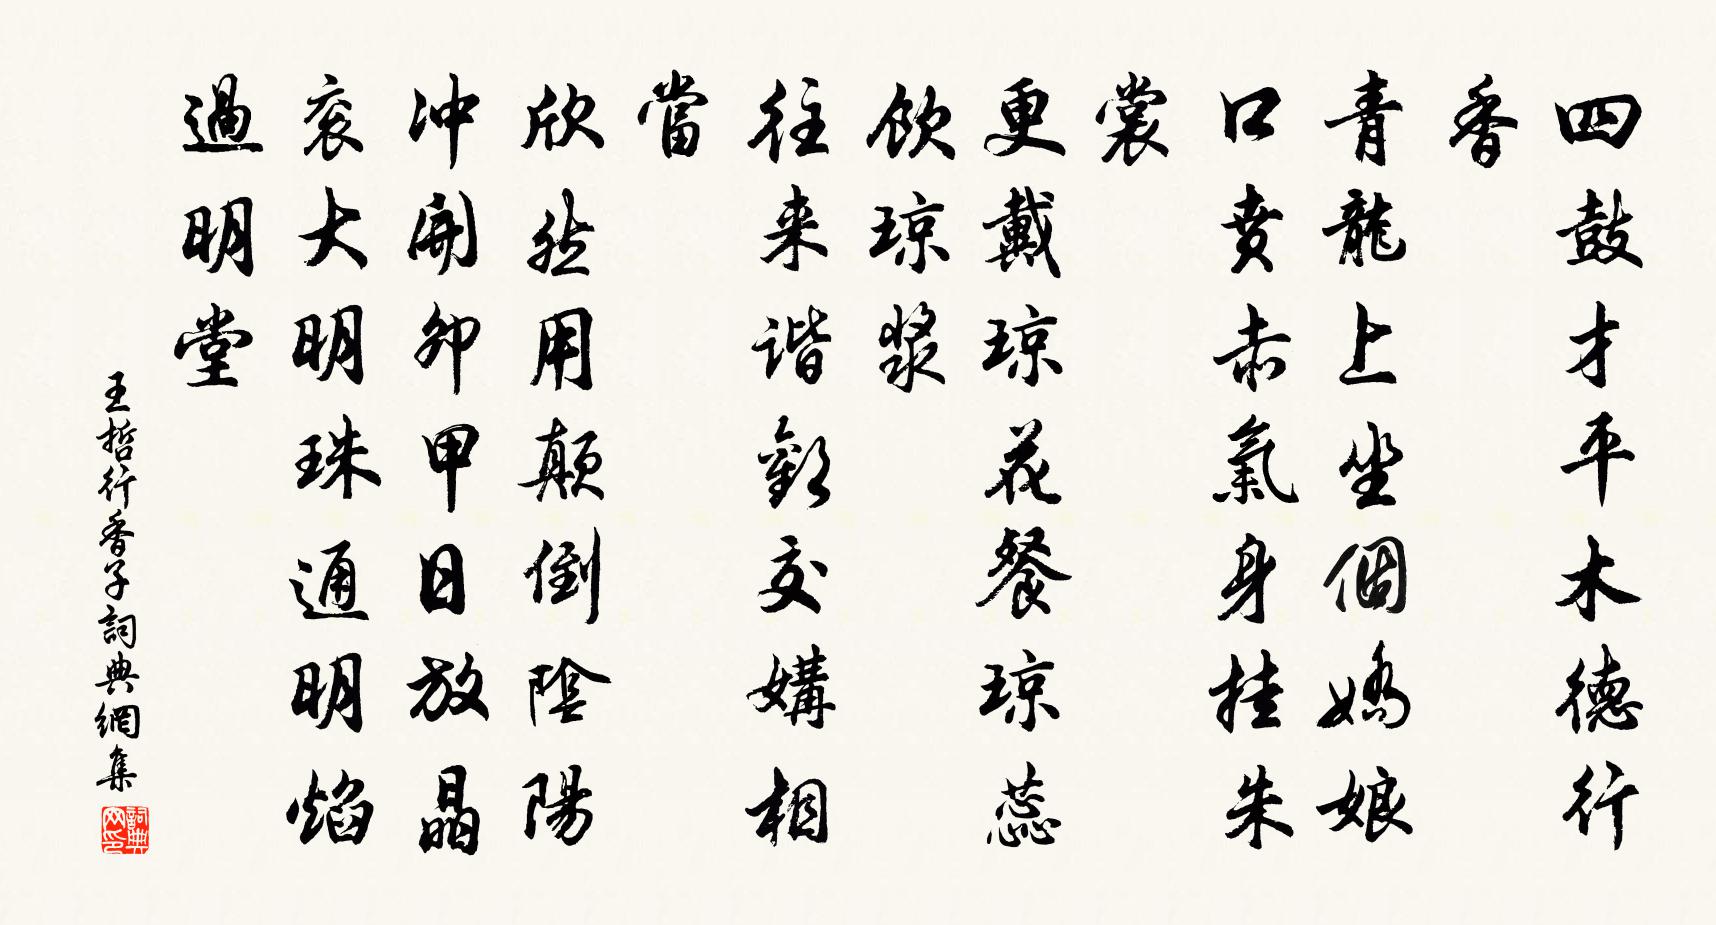 四鼓才平木德行
香
青龍上坐個嬌娘
口賁赤氣身挂朱
裳
更戴琼花餐琼蕊
飲琼漿
往来谐歡交媾相
當
欣然用顛倒陰陽
冲開卯甲日放晶
衮大明珠通明焰
過明堂
王哲行香子詞典網集
詞典网印